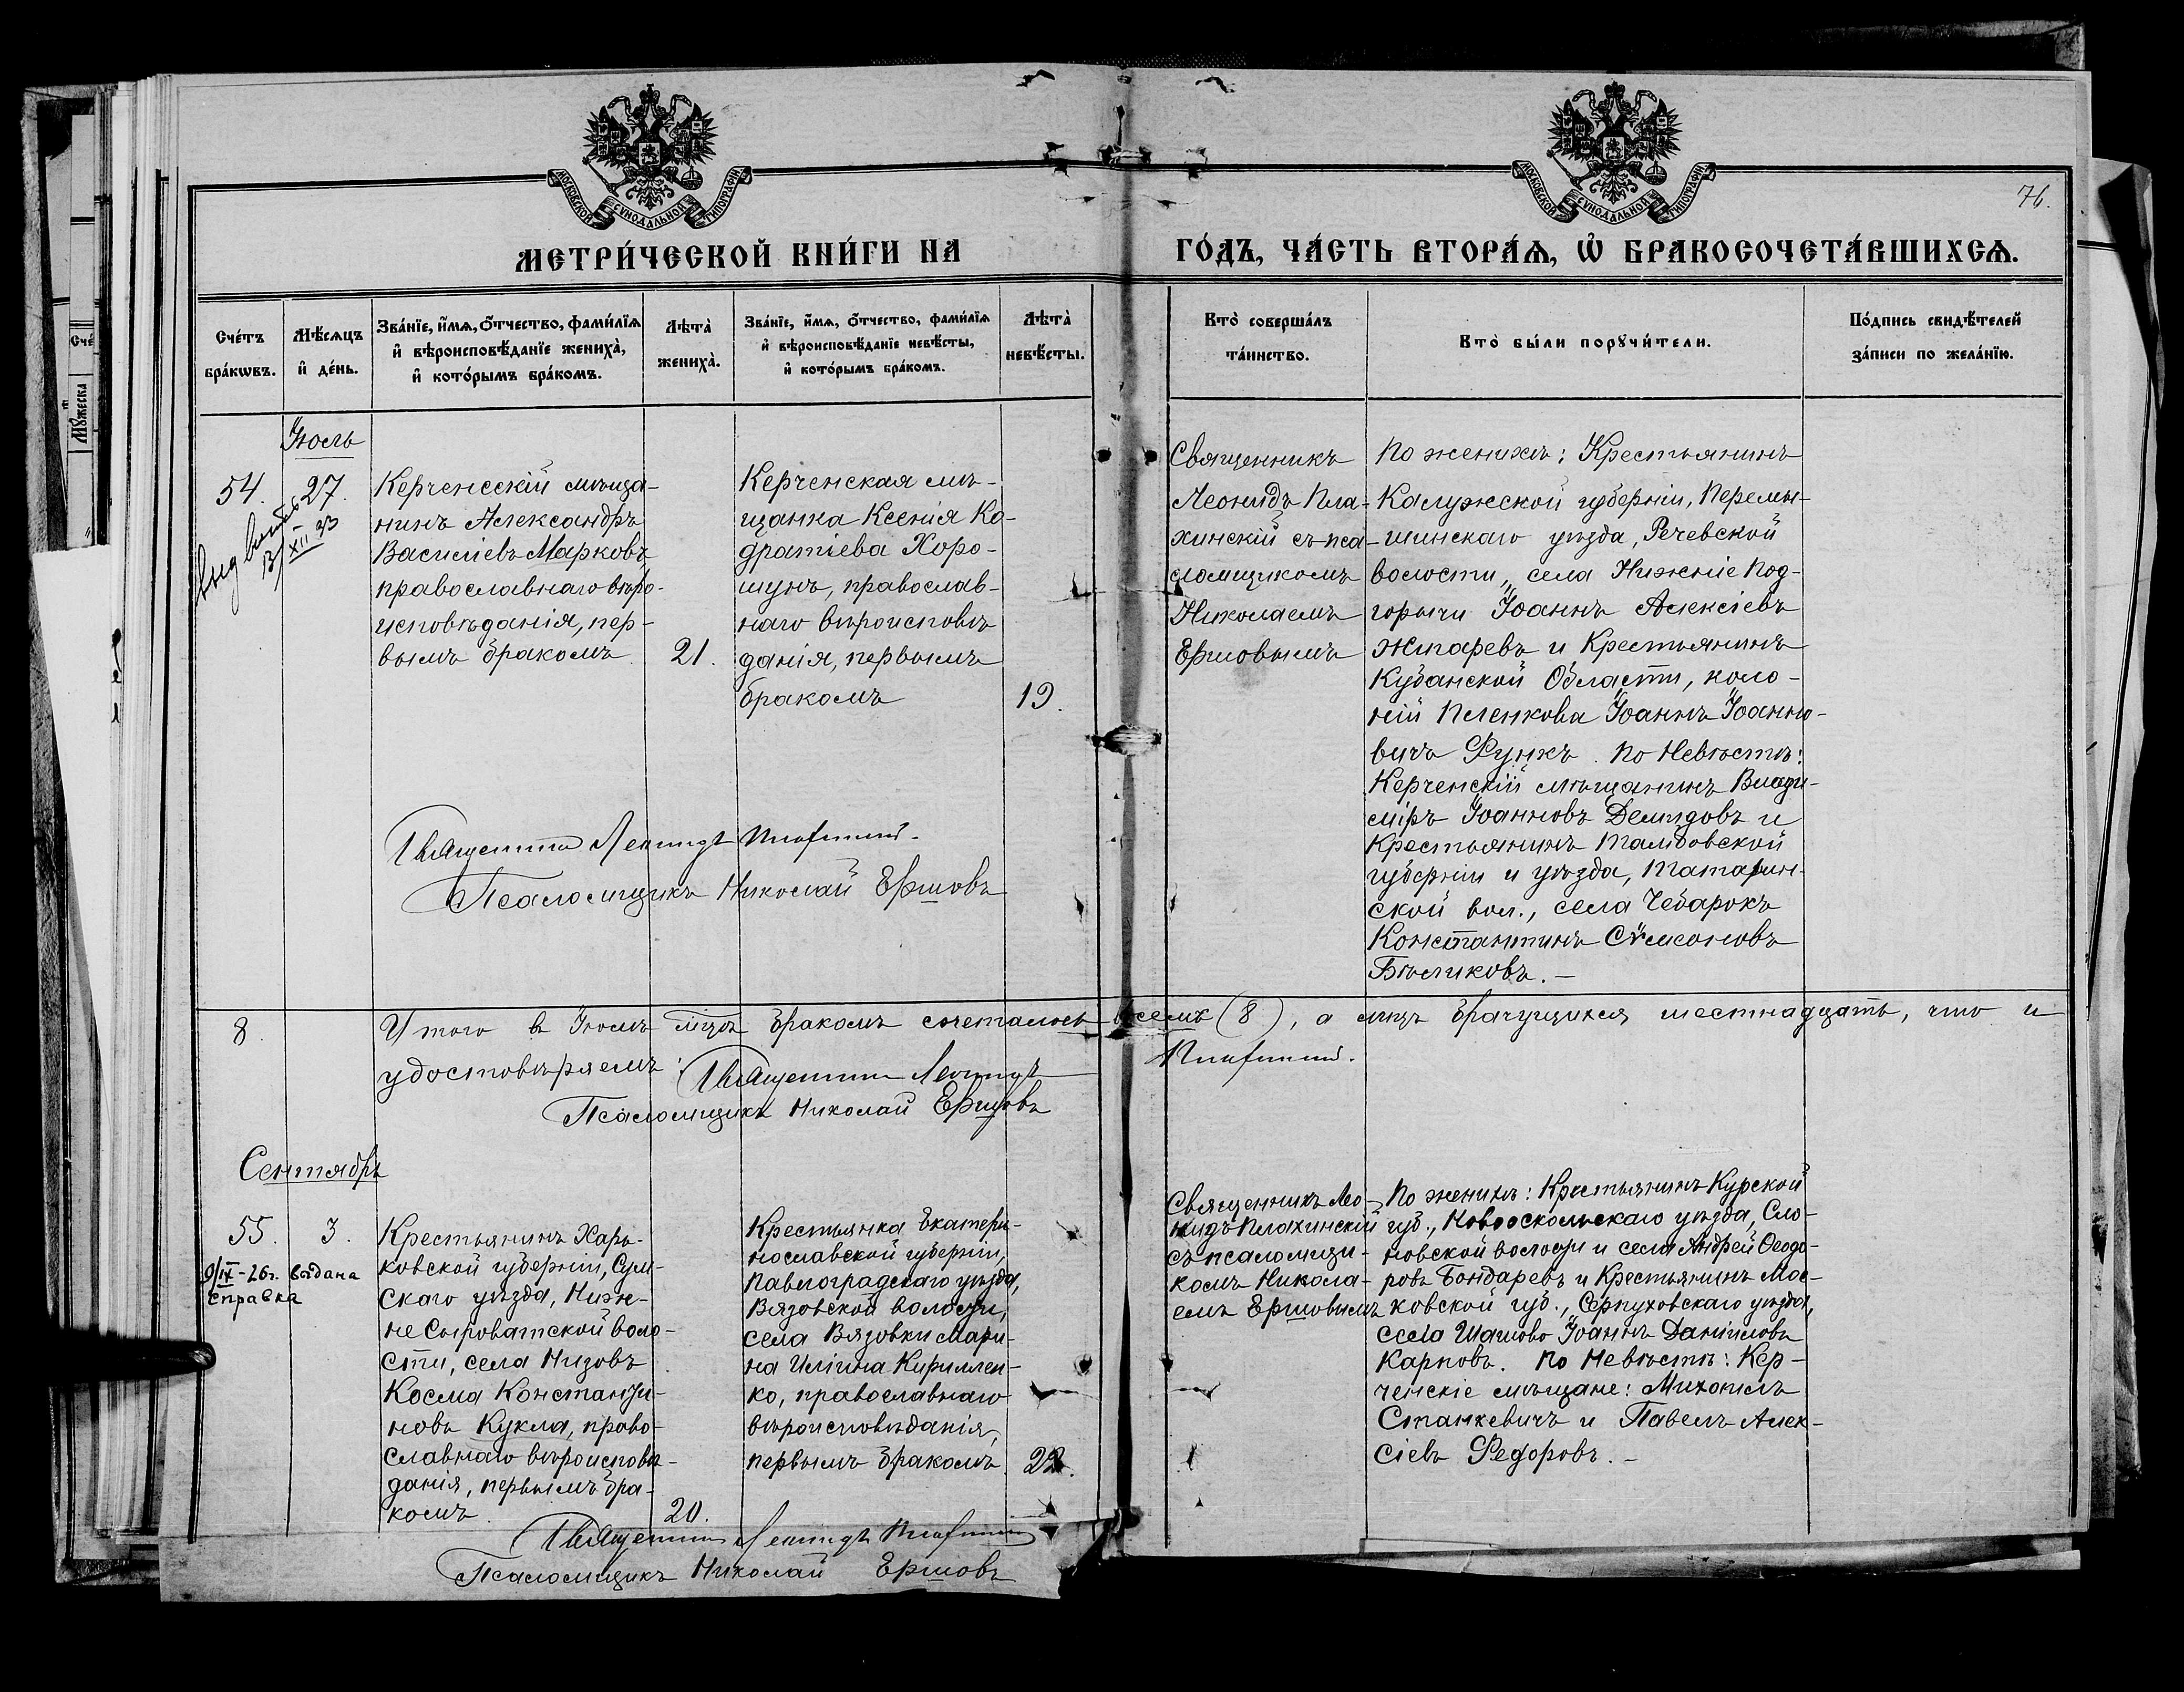 МОСКОВСКОЙ СѴНОДАЛЬНОЙ ТИПОГРАФІИ
МОСКОВСКОЙ СѴНОДАЛЬНОЙ ТИПОГРАФІИ
76.
МЕТРИ́ЧЕСКОЙ КНИ́ГИ НА
ГО́ДЪ, ЧА́СТЬ ВТОРА́Ѧ, Ѡ҆ БРАКОСОЧЕТА́ВШИХСѦ.
Сче́тъ
бра́кѡвъ.
Мѣ́сѧцъ
и҆ де́нь.
Зва́нїе, и҆́мѧ, ѻ҆́тчество, фами́лїѧ
и҆ вѣроисповѣ́данїе жениха̀,
и҆ кото́рымъ бра́комъ.
Лѣта̀
жениха̀.
Зва́нїе, и҆́мѧ, ѻ҆́тчество, фами́лїѧ
и҆ вѣроисповѣ́данїе невѣ́сты,
и҆ кото́рымъ бра́комъ.
Лѣта̀
невѣ́сты.
Кто̀ соверша́лъ
та́инство.
Кто̀ бы́ли порꙋчи́тели.
По́дпись свидѣ́телей
за́писи по жела́нїю.
Іюль
54.
27.
13/XII 23
Керченскій мѣща-
нинъ Александръ
Василіевъ Марковъ
православнаго вѣро-
исповѣданія, пер-
вымъ бракомъ
21.
Керченская мѣ-
щанка Ксенія Ко-
дратіева Хоро-
шунъ, православ-
наго вѣроисповѣ
данія, первымъ
бракомъ
19.
Священникъ
Леонидъ Пла-
хинскій съ пса-
ломщикомъ
Николаемъ
Ершовымъ
По женихѣ: Крестьянинъ
Калужской губерніи, Перемы-
шльскаго уѣзда, Речевской
волости, села Нижніе Под-
горичи Іоаннъ Алексіевъ
Жигаревъ и Крестьянинъ
Кубанской Области, коло-
ніи Пленкова Іоаннъ Іоанно-
вичъ Функъ. По Невѣстѣ:
Керченскій мѣщанинъ Влади-
міръ Іоанновъ Демидовъ и
Крестьянинъ Тамбовской
губерніи и уѣзда, Татарин-
ской вол., села Чебарокъ
Константинъ Сѵмеоновъ
Бѣликовъ.—
Священникъ Леонидъ Плахинскій.
Псаломщикъ Николай Ершовъ
8.
Итого в Іюлѣ мцѣ бракомъ сочеталось восемь (8), а лицъ брачущихся шестнадцать, что и
удостовѣряемъ: Священникъ Леонидъ Плахинскій.
Псаломщикъ Николай Ершовъ
Сентябрь
55.
3.
9/IX-26г. выдана
справка
Крестьянинъ Харь-
ковской губерніи, Сум-
скаго уѣзда, Ниж-
не Сыроватской воло-
сти, села Низовъ
Косма Константи-
новъ Кукла, право-
славнаго вѣроисповѣ-
данія, первымъ бра-
комъ
20.
Крестьянка Екатери-
нославской губерніи,
Павлоградскаго уѣзда,
Вязовской волости,
села Вязовки Мари-
на Иліина Кириллен-
ко, православнаго
вѣроисповѣданія,
первымъ бракомъ
22.
Священникъ Лео-
нидъ Плахинскій
съ псаломщи-
комъ Никола-
емъ Ершовымъ
По женихѣ: Крестьянинъ Курской
губ., Новооскольскаго уѣзда, Сло-
новской волости и села Андрей Ѳеодо-
ровъ Бондаревъ и Крестьянинъ Мос-
ковской губ., Серпуховскаго уѣзда,
села Шатово Іоаннъ Даніиловъ
Карповъ. По Невѣстѣ: Кер-
ченскіе мѣщане: Михаилъ
Станкевичъ и Павелъ Алек-
сіевъ Федоровъ.—
Священникъ Леонидъ Плахинскій
Псаломщикъ Николай Ершовъ